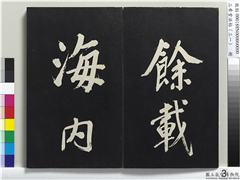 餘載
海内